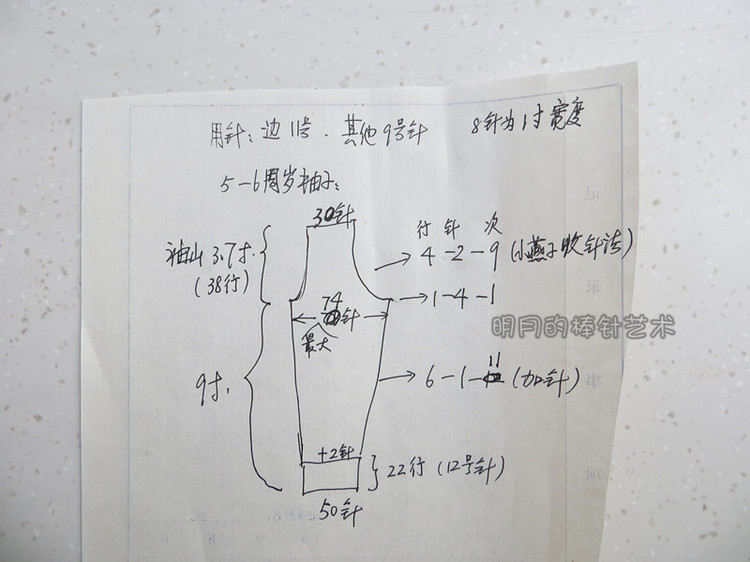 用针：边11号．其他9号针 8针为1寸宽度
5-6周岁袖子：
30针
行 针 次
袖山3.7寸． 4-2-9（小燕子收针法）
（38行）
1-4-1
74
针
最大
明月的棒针艺术
9寸． 6-1-11（加针）
+2针
22行（12号针）
50针